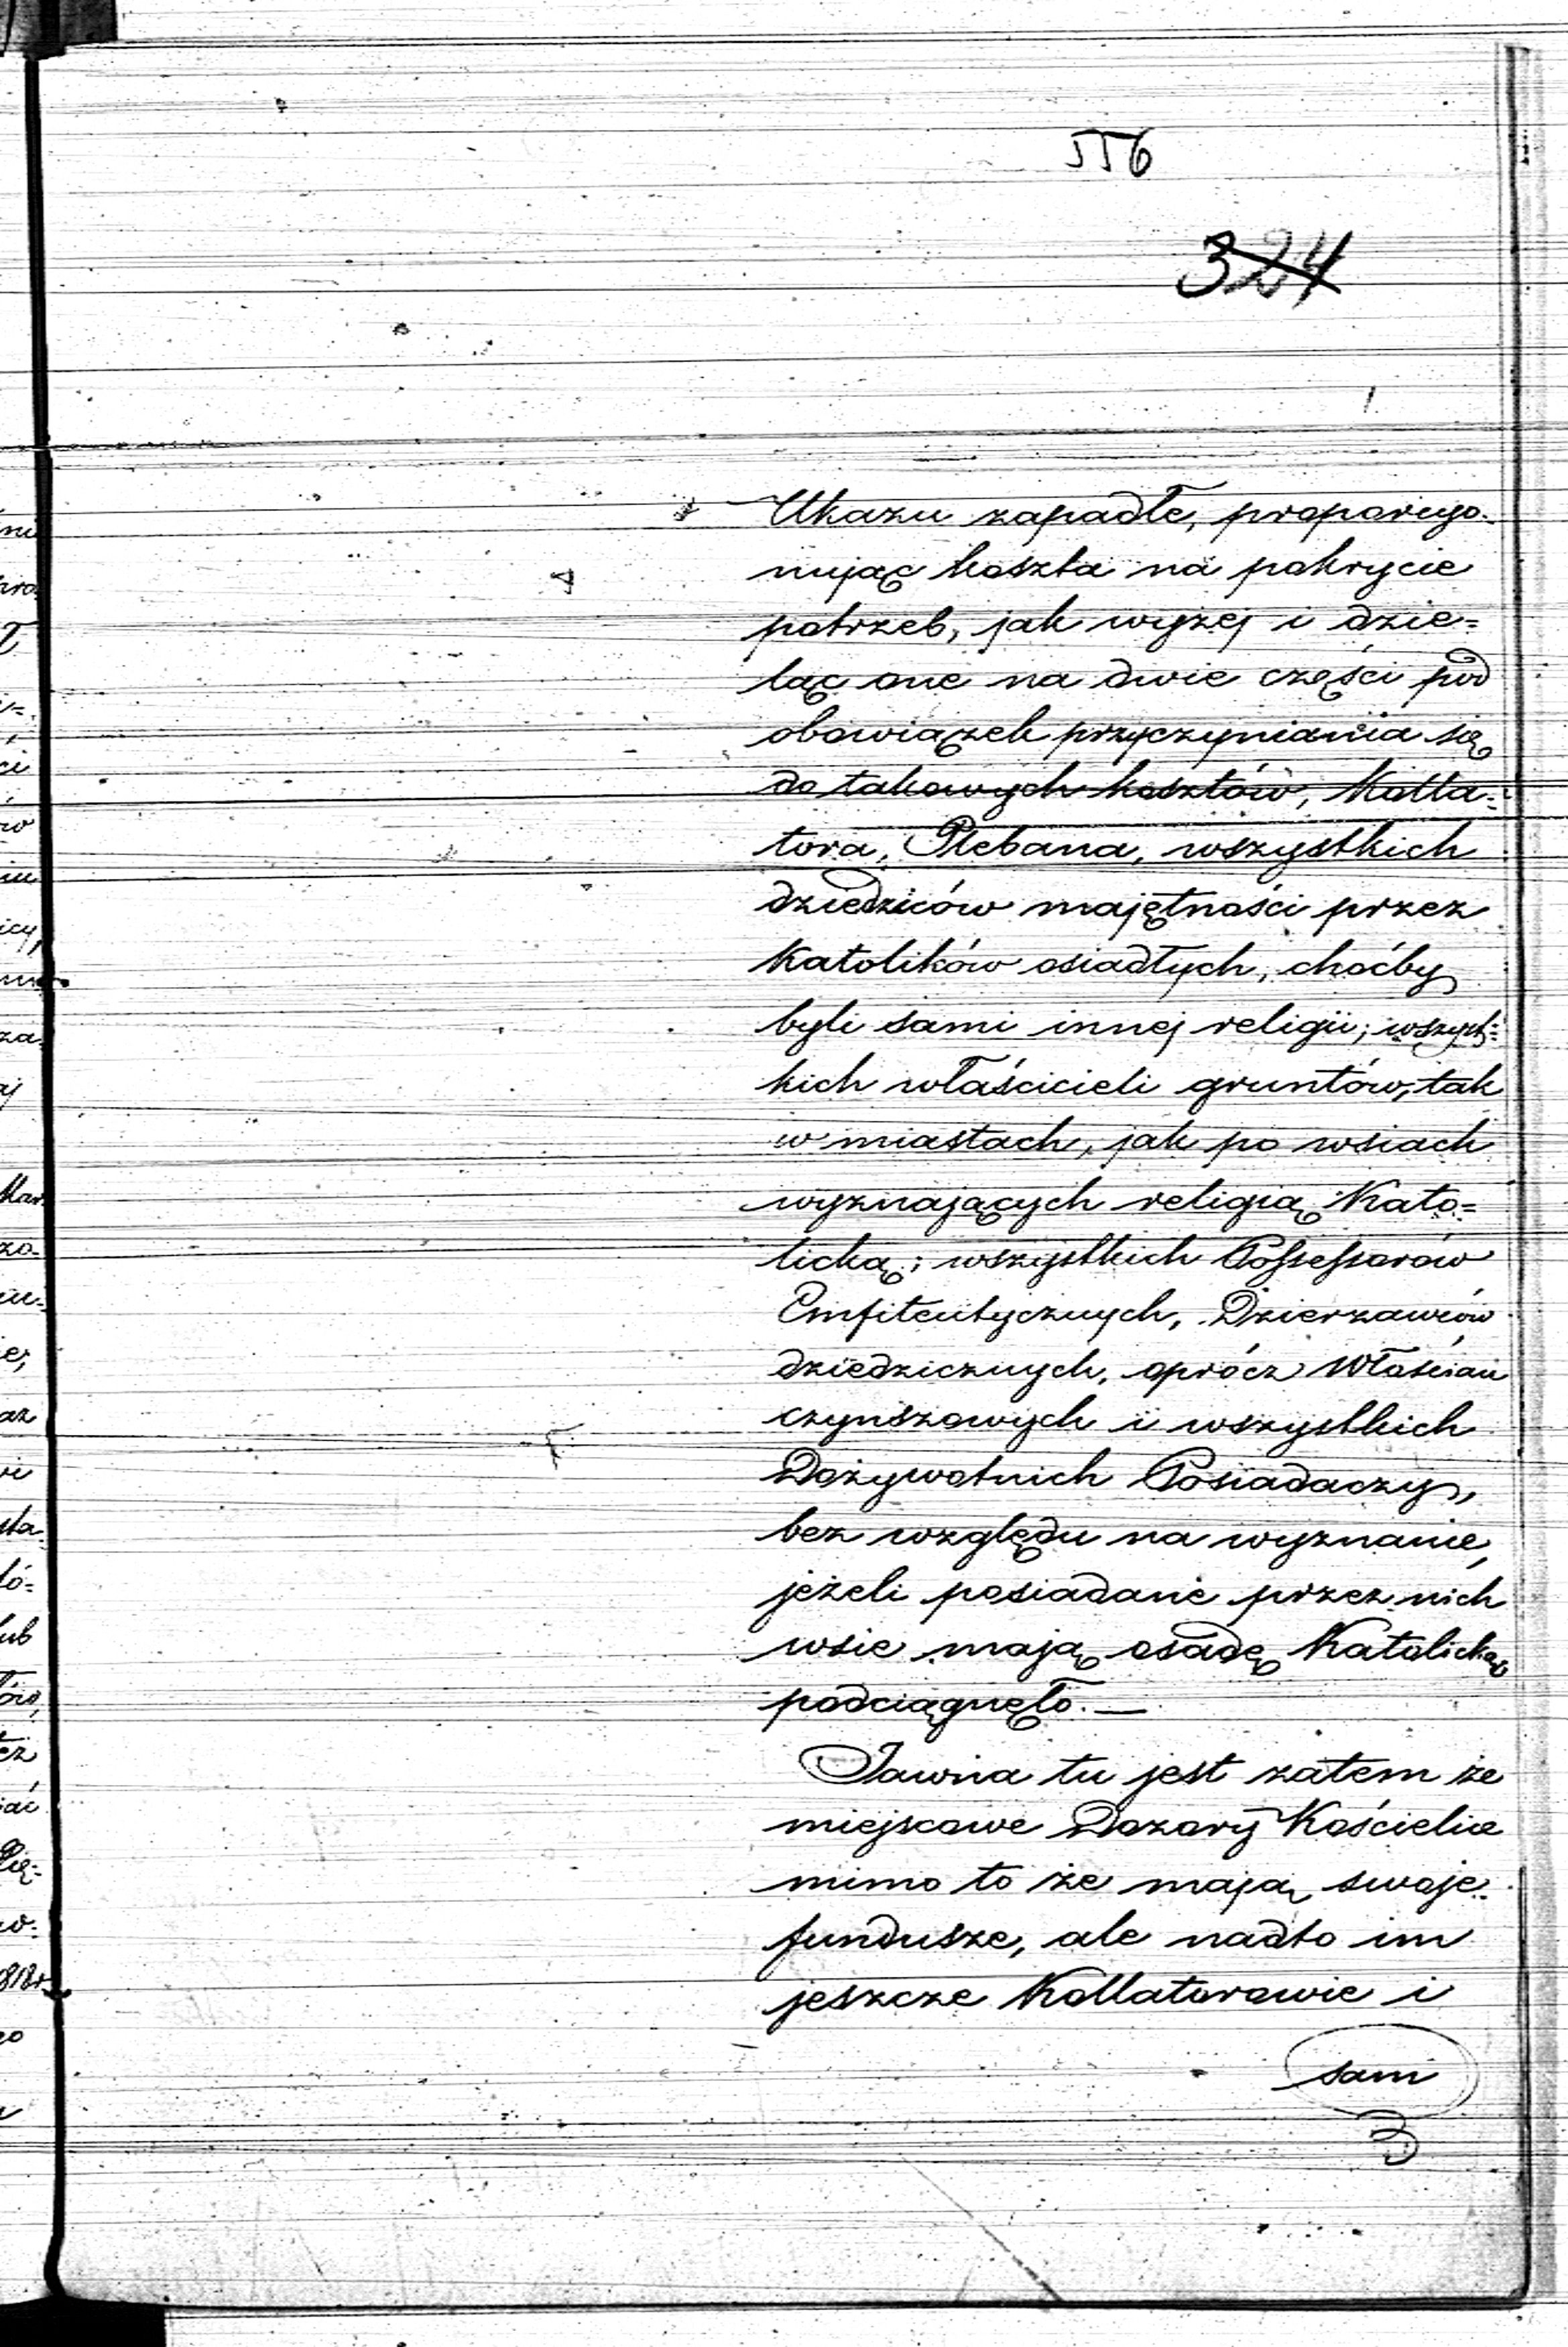 556
324
Ukazu zapadłe, proporcyo-
nując koszta na pokrycie
potrzeb, jak wyżej i dzie=
ląc one na dwie części pod
obowiązek przyczyniania się
do takowych kosztów, Kolla-
tora, Plebana, wszystkich
dziedziców majętności przez
Katolików osiadłych, choćby
byli sami innej religii; wszyst-
kich właścicieli gruntów, tak
w miastach, jak po wsiach
wyznających religią Kato=
licką; wszystkich Possessorów
Emfiteutycznych, Dzierzawców
dziedzicznych, oprócz Włościan
czynszowych i wszystkich
Dożywotnich Posiadaczy,
bez względu na wyznanie,
jeżeli posiadane przez nich
wsie mają osadę Katolicką
podciągnęło. —
Jawna tu jest zatem że
miejscowe Dozory Kościelne
mimo to że mają swoje
fundusze, ale nadto im
jeszcze Kollatorowie i
sami